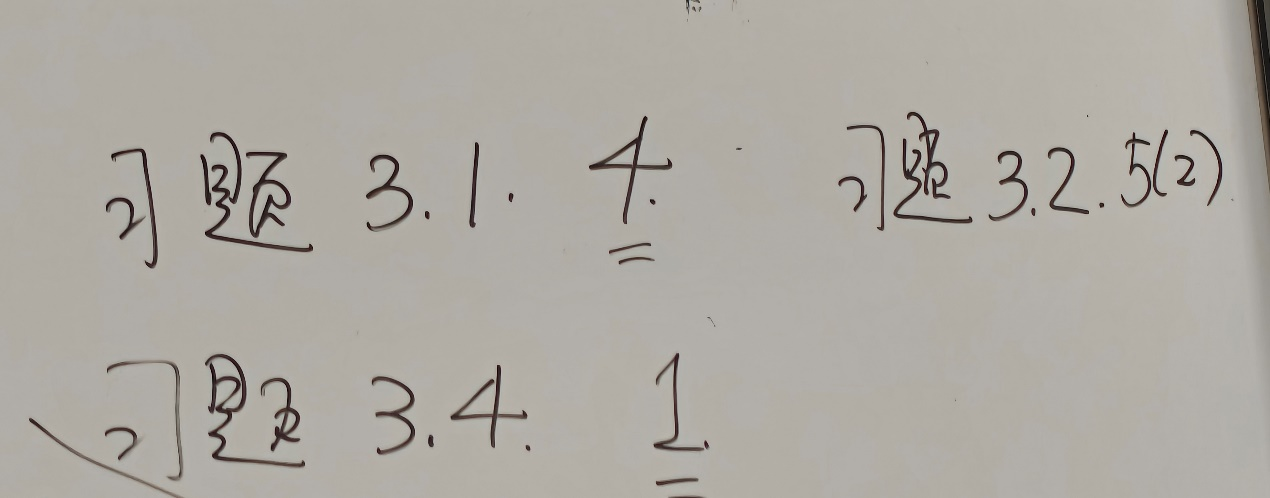 习题 3.1. 4. 习题 3.2. 5(2)
习题 3.4. 1.